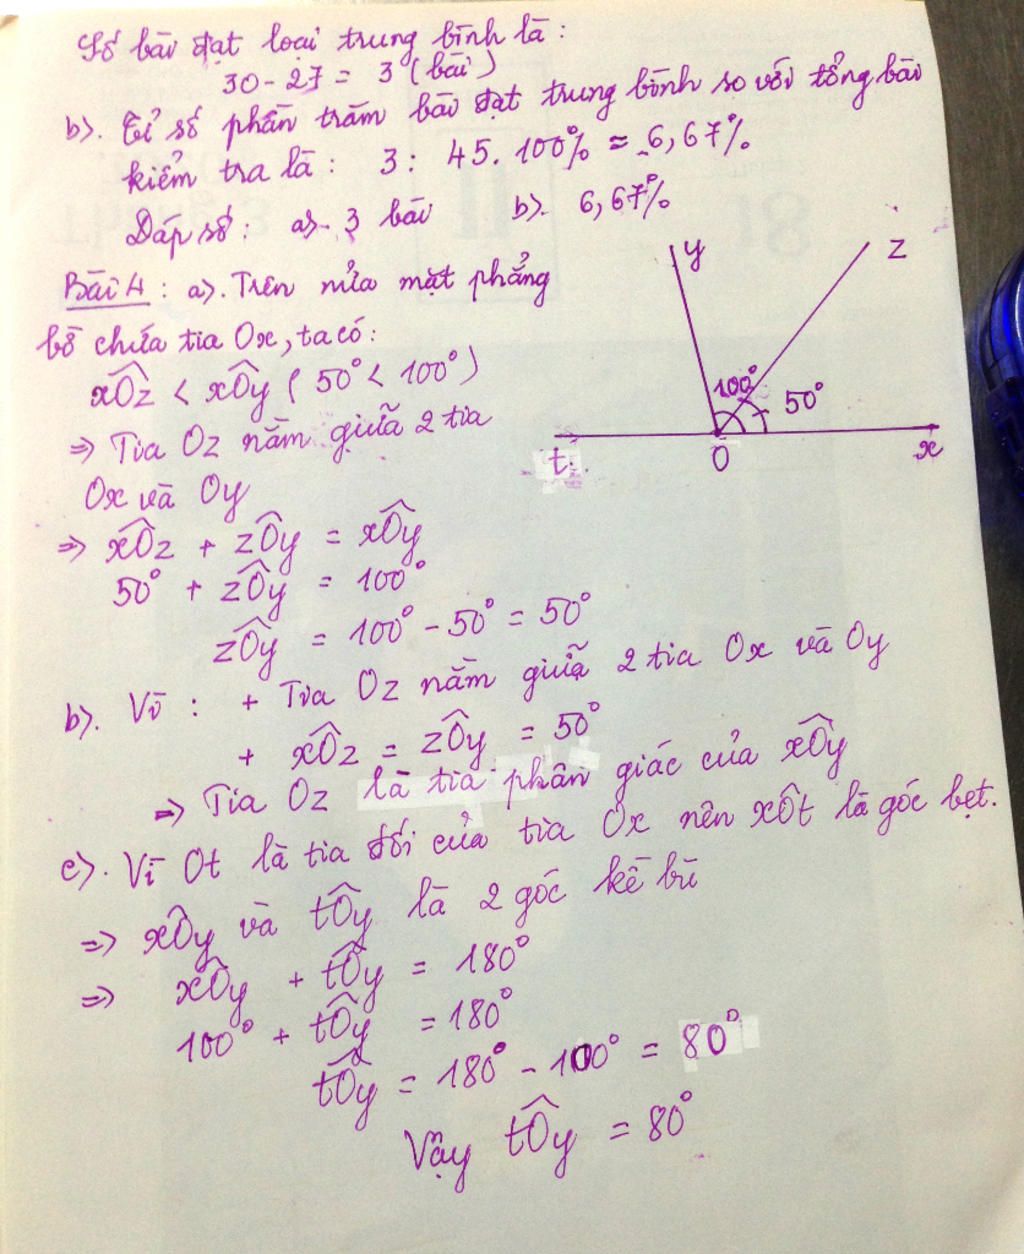 Số bài đạt loại trung bình là :
30 - 27 = 3 (bài)
b). Tỉ số phần trăm bài đạt trung bình so với tổng bài
kiểm tra là : 3 : 45. 100% ≈ 6,67%
Đáp số : a). 3 bài b). 6,67%
Bài 4 : a). Trên nửa mặt phẳng
bờ chứa tia Ox, ta có :
xÔz < xÔy ( 50° < 100° )
⇒ Tia Oz nằm giữa 2 tia
Ox và Oy
y
z
100°
50°
t
O
x
⇒ xÔz + zÔy = xÔy
50° + zÔy = 100°
zÔy = 100° - 50° = 50°
b). Vì : + Tia Oz nằm giữa 2 tia Ox và Oy
+ xÔz = zÔy = 50°
⇒ Tia Oz là tia phân giác của xÔy
c). Vì Ot là tia đối của tia Ox nên xÔt là góc bẹt.
⇒ xÔy và tÔy là 2 góc kề bù
⇒ xÔy + tÔy = 180°
100° + tÔy = 180°
tÔy = 180° - 100° = 80°
Vậy tÔy = 80°